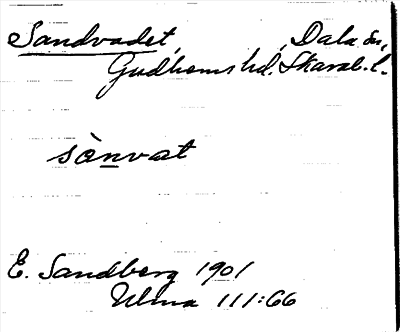 Sandvadet, Dala sn,
Gudhems hd. Skarab. l.
sònvat
E. Sandberg 1901
Ulma 111:66